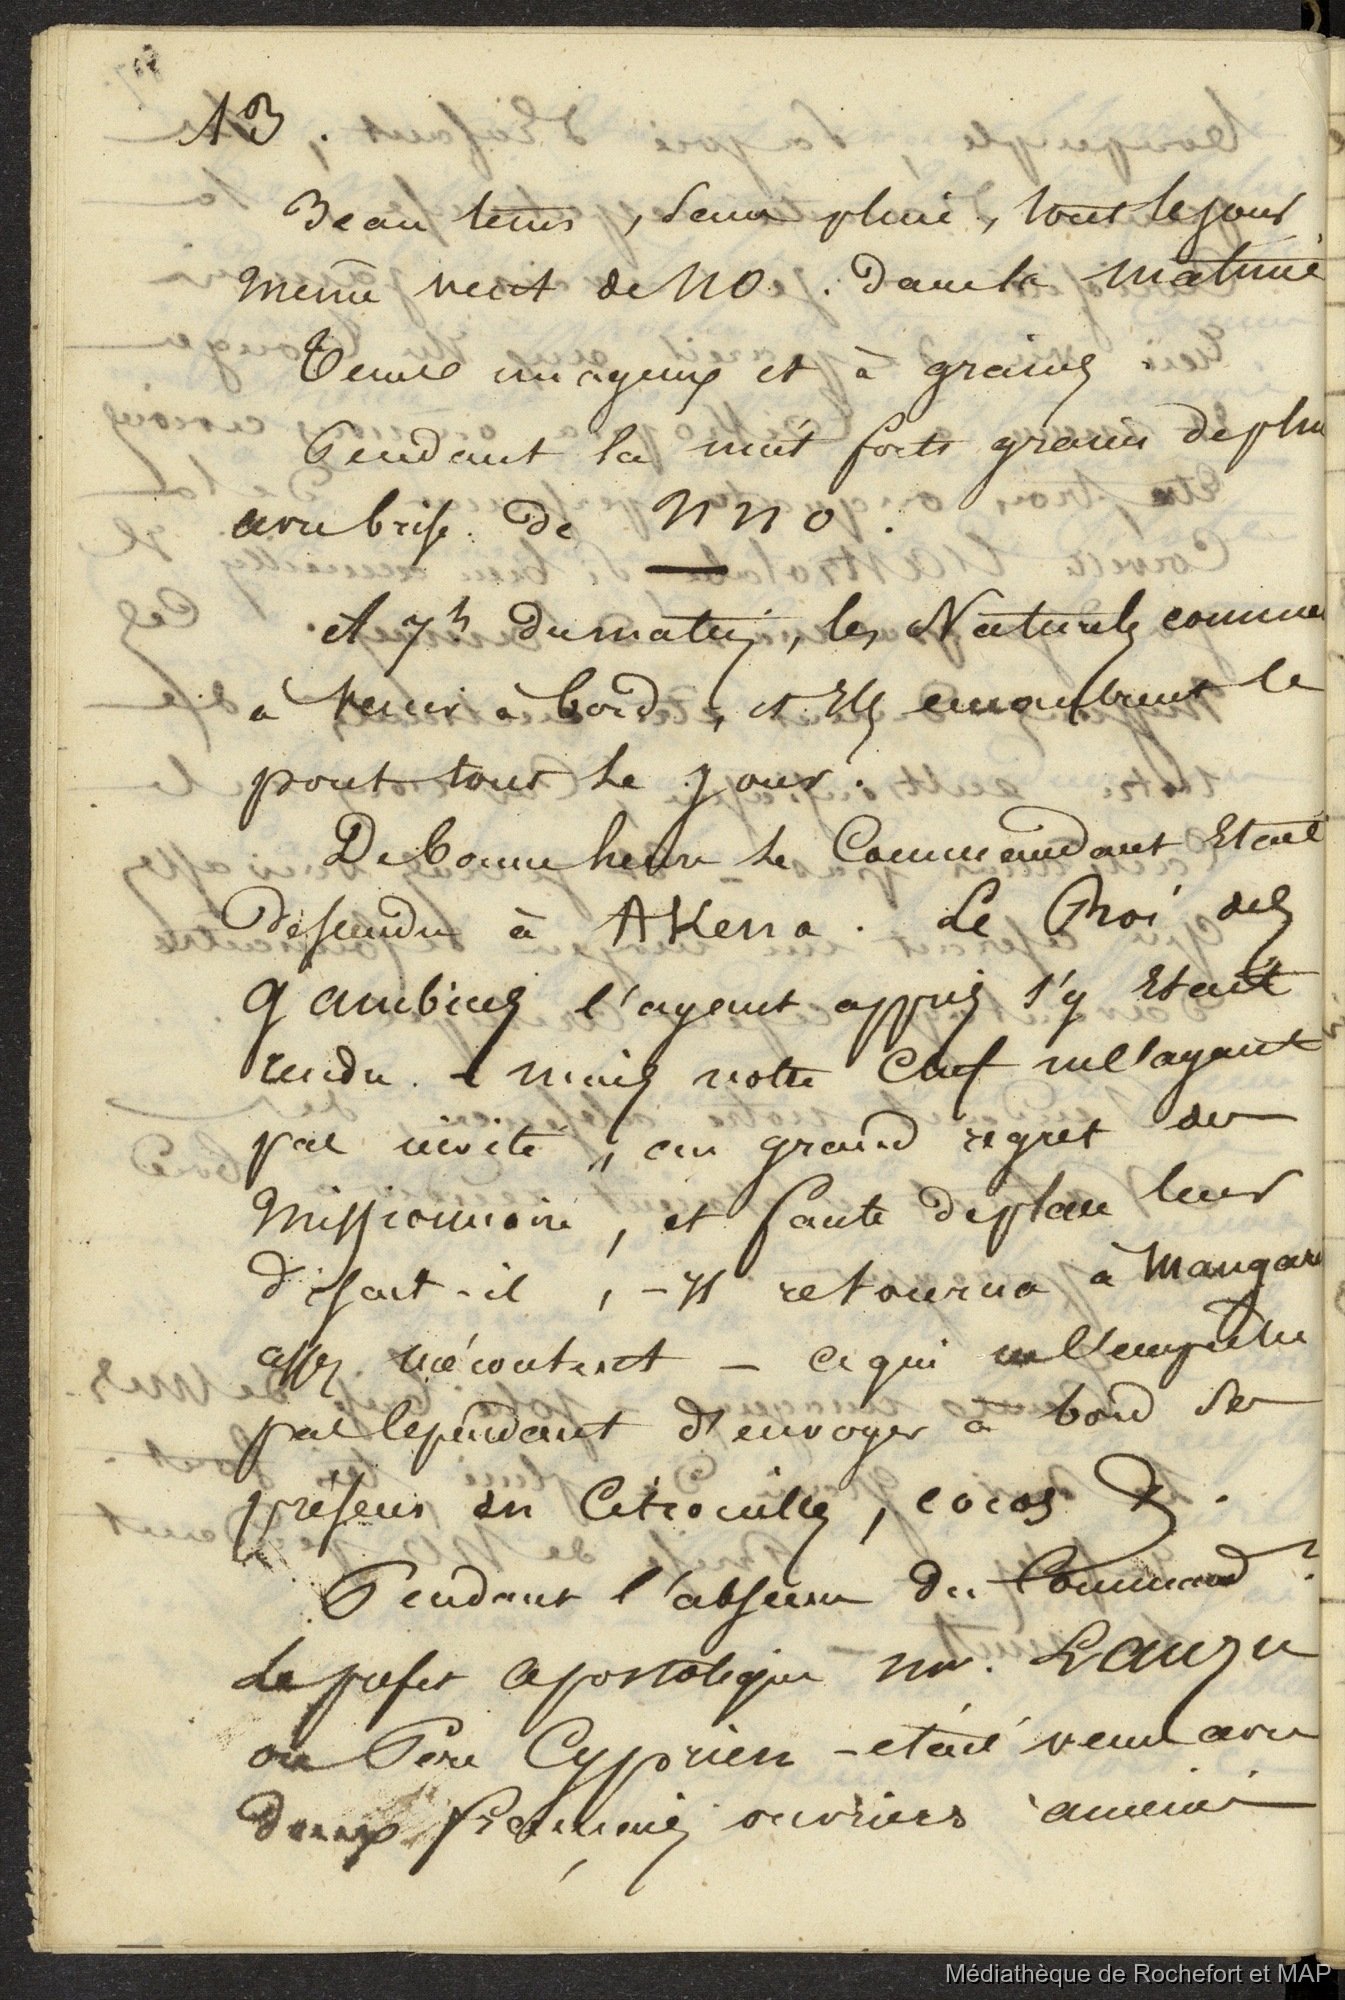 13.
Beau tems, sans pluie, tout le jour
même vent de NO. Dans la matiné
Tems nuageux et à grains
Pendant la nuit forts grains de plu
avec brise de NNO.
A 7h du matin, les Naturels commen
à venir à bord, et ils encombrent le
pont tout le jour.
De bonne heure le Commandant etait
descendu à AKena. Le Roi des
gambiers l'ayant appris s'y etait
rendu. - mais notre Chef ne l'ayant
pas invité, au grand regret des
Missionnaire, et faute de place leur
disait-il, - Il retourna à Mangare
assez mécontent - ce qui ne l'empêche
pas cependant d'envoyer à bord des
présens en Citrouilles, cocos &.
Pendant l'absence du Command.t
Le prefet apostolique mr. Lausu
ou Père Cyprien - etait venu avec
deux français ouvriers amenés
Médiathèque de Rochefort et MAP